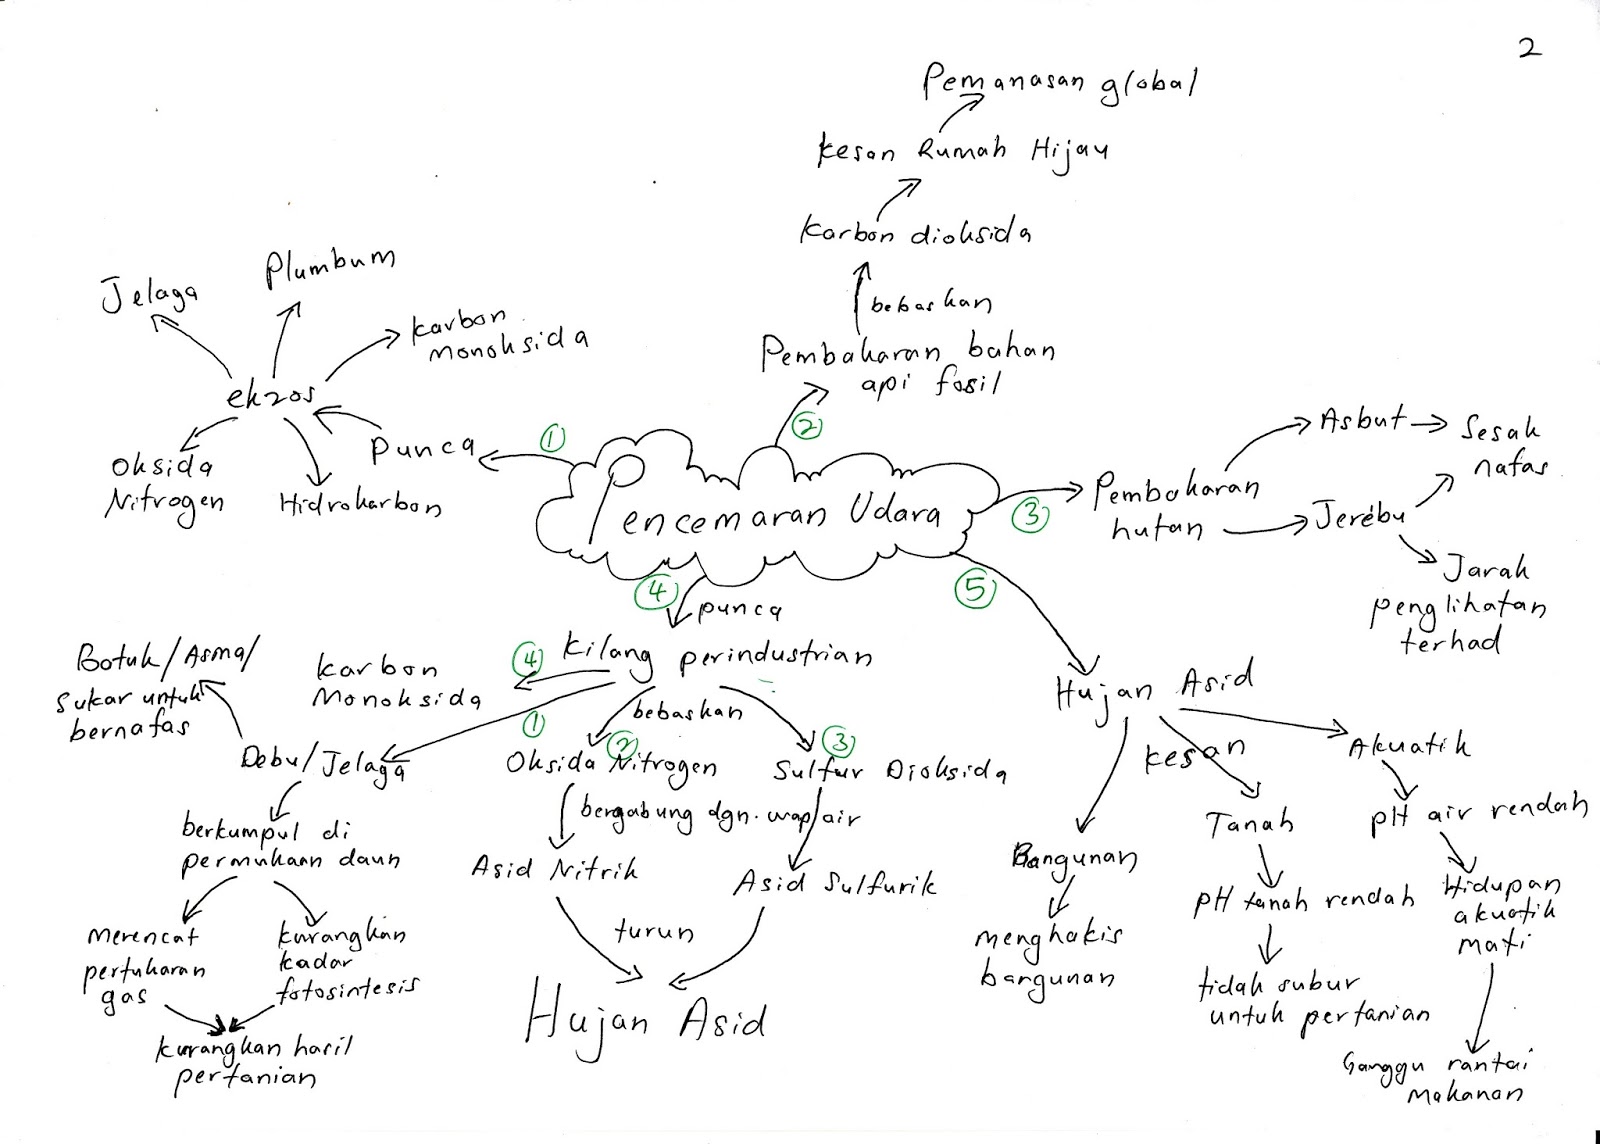 2
Pemanasan global
Kesan Rumah Hijau
Karbon dioksida
bebaskan
Pembakaran bahan
api fosil
2
Jelaga
Plumbum
Karbon
monoksida
ekzos
Punca
1
Oksida
Nitrogen
Hidrokarbon
Pencemaran Udara
3
Pembakaran
hutan
Asbut
Sesak
nafas
Jerebu
Jarak
penglihatan
terhad
4
punca
Kilang perindustrian
4
Karbon
Monoksida
1
Batuk/Asma/
sukar untuk
bernafas
Debu/Jelaga
berkumpul di
permukaan daun
merencat
pertukaran
gas
kurangkan
kadar
fotosintesis
kurangkan hasil
pertanian
bebaskan
2
Oksida Nitrogen
3
Sulfur Dioksida
bergabung dgn. wap/air
Asid Nitrik
Asid Sulfurik
turun
Hujan Asid
5
Hujan Asid
kesan
Bangunan
menghakis
bangunan
Tanah
pH tanah rendah
tidak subur
untuk pertanian
Akuatik
pH air rendah
Hidupan
akuatik
mati
Ganggu rantai
makanan